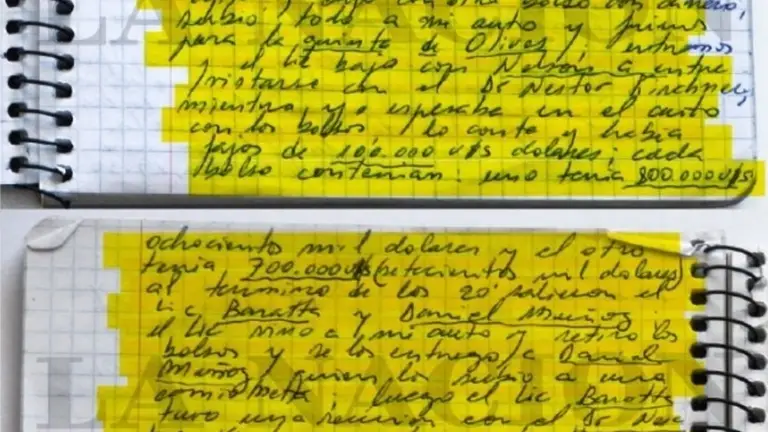 bajo con otro bolso con dinero,
subio todo a mi auto y fuimos
para la quinta de Olivos; entramos
y el lic bajo con Nelson a entre
/vistarse con el Dr Nestor Kirchner,
mientras yo esperaba en el auto
con los bolsos, lo conte y habia
fajos de 100.000 u$s dolares; cada
bolso contenian: uno tenia 800.000 u$s
ochocientos mil dolares y el otro
tenia 700.000 u$s (setecientos mil dolares)
al termino de los 20' salieron el
lic Baratta y Daniel Muñoz
el lic vino a mi auto y retiro los
bolsos y se los entrego a Daniel
Muñoz, quien los subio a una
camioneta; luego el lic Baratta
tuvo una reunion con el Dr
LA NACION
LA NACION